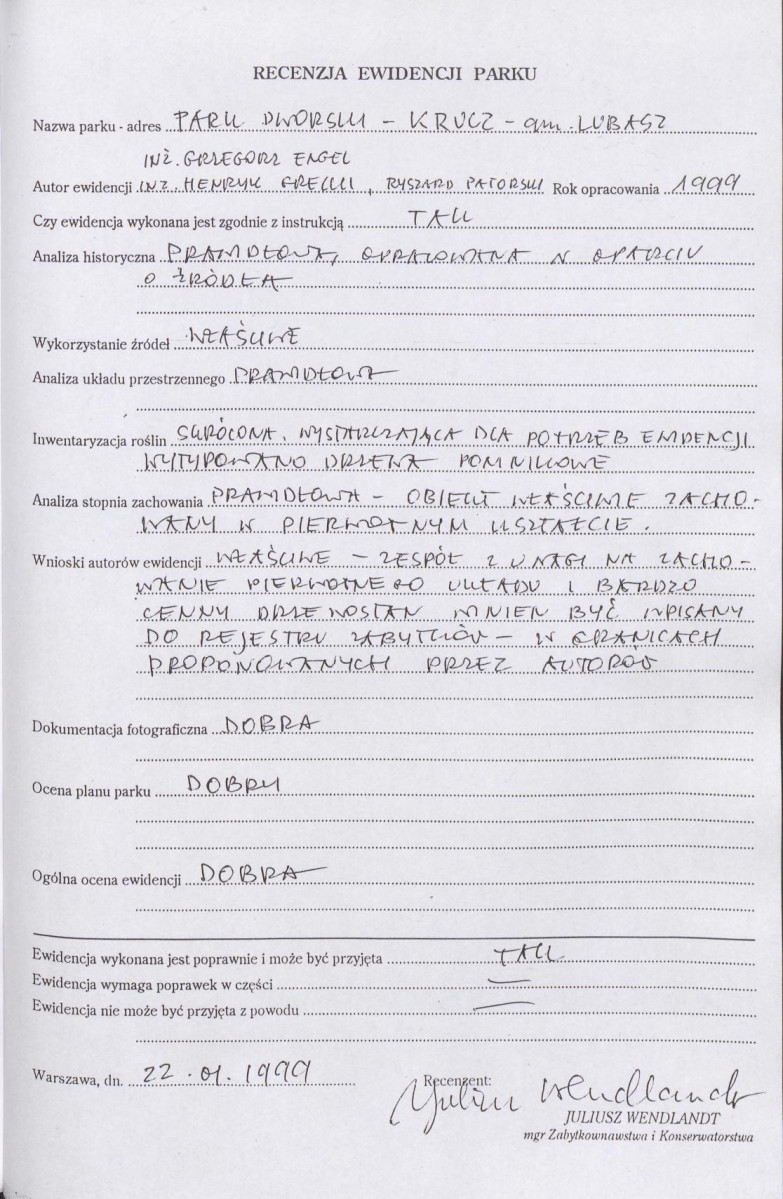 RECENZJA EWIDENCJI PARKU
Nazwa parku - adres PARK DWORSKI - KRUCZ - gm. LUBASZ
INŻ. GRZEGORZ ENGEL
Autor ewidencji INŻ. HENRYK GRECKI, RYSZARD PATORSKI Rok opracowania 1999
Czy ewidencja wykonana jest zgodnie z instrukcją TAK
Analiza historyczna PRAWIDŁOWA, OPRACOWANA W OPARCIU
O ŹRÓDŁA
Wykorzystanie źródeł WŁAŚCIWE
Analiza układu przestrzennego PRAWIDŁOWA
Inwentaryzacja roślin SKRÓCONA. WYSTARCZAJĄCA DLA POTRZEB EWIDENCJI
WYTYPOWANO DRZEWA POMNIKOWE
Analiza stopnia zachowania PRAWIDŁOWA - OBIEKT WŁAŚCIWIE ZACHO-
WANY W PIERWOTNYM KSZTAŁCIE.
Wnioski autorów ewidencji WŁAŚCIWE - ZESPÓŁ Z UWAGI NA ZACHO-
WANIE PIERWOTNEGO UKŁADU I BARDZO
CENNY DRZEWOSTAN WINIEN BYĆ WPISANY
DO REJESTRU ZABYTKÓW - W GRANICACH
PROPONOWANYCH PRZEZ AUTORÓW
Dokumentacja fotograficzna DOBRA
Ocena planu parku DOBRY
Ogólna ocena ewidencji DOBRA
Ewidencja wykonana jest poprawnie i może być przyjęta TAK
Ewidencja wymaga poprawek w części —
Ewidencja nie może być przyjęta z powodu —
Warszawa, dn. 22.01.1999
Recenzent:
Juliusz Wendlandt
JULIUSZ WENDLANDT
mgr Zabytkownawstwa i Konserwatorstwa